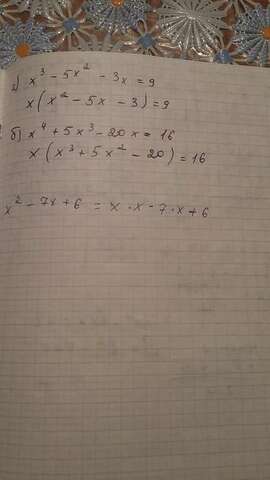 а) x³ - 5x² - 3x = 9
x(x² - 5x - 3) = 9
б) x⁴ + 5x³ - 20x = 16
x(x³ + 5x² - 20) = 16
x² - 7x + 6 = x · x - 7 · x + 6